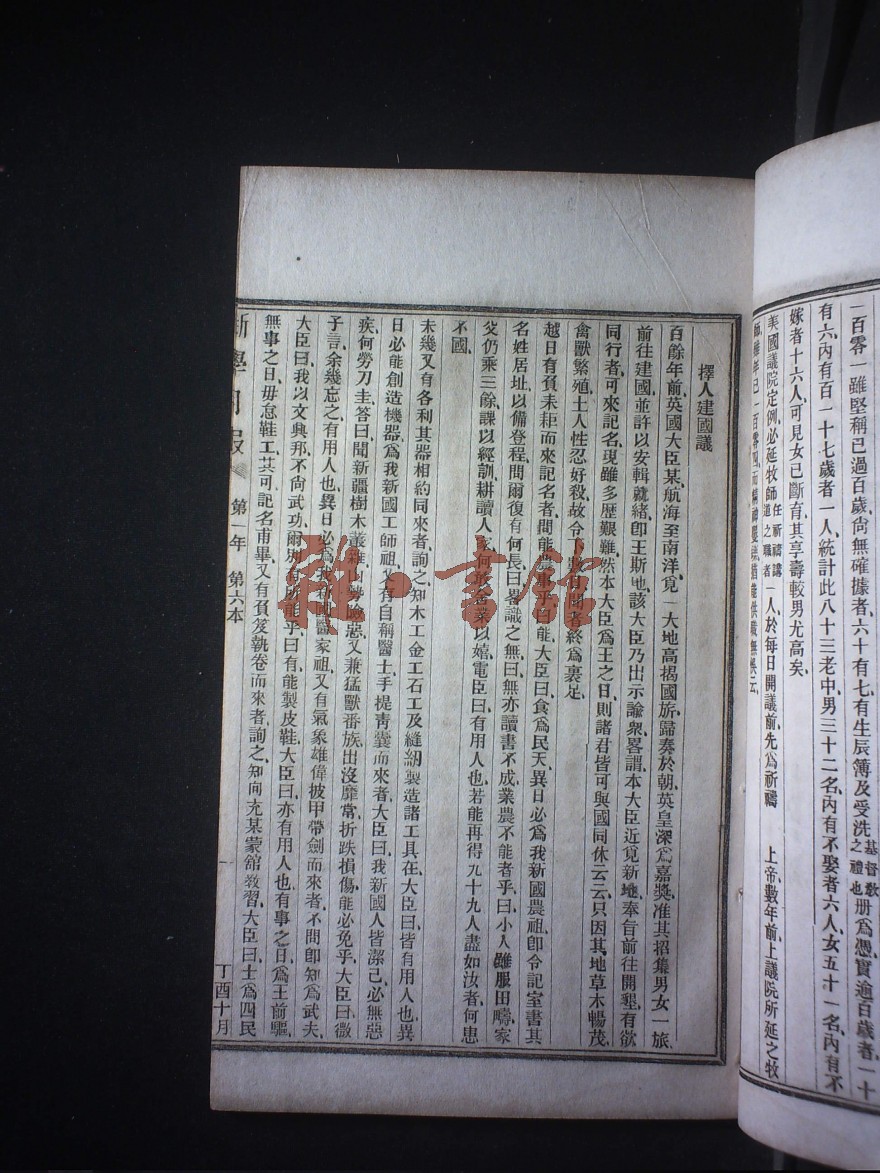 一百零一雖堅稱已過百歲尙無確據者、六十有七、有生辰簿及受洗基督教之禮也册爲憑、實逾百歲者、一十
有六、內有百一十七歲者一人、統計此八十三老中、男三十二名、內有不娶者六人、女五十一名、內有不
嫁者十六人、可見女已斷育、其享壽較男尤高矣、
美國議院定例、必延牧師任祈禱講道之職者一人、於每日開議前、先爲祈禱 上帝、數年前、上議院所延之牧
擇人建國議
百餘年前、英國大臣某、航海至南洋、覓一大地、高揭國旂、歸奏於朝、英皇深爲嘉獎、准其招集男女一旅、
前往建國、並許以安輯就緒、卽王斯地、該大臣乃出示諭衆、畧謂本大臣近覓新地、奉旨前往開墾、有欲
同行者、可來記名、現雖多歷艱難、然本大臣爲王之日、則諸君皆可與國同休云云、只因其地草木暢茂、
禽獸繁殖、土人性忍好殺、故令下數有聞者終爲裹足、
越日有負耒耟而來記名者、問能農事乎、曰能、大臣曰、食爲民天、異日必爲我新國農祖、卽令記室書其
名姓居址、以備登程、問爾復有何長、曰畧識之無、曰無亦讀書不成、業農不能者乎、曰小人雖服田疇、家
父仍乘三餘、課以經訓、耕讀人家、何敢舍業以嬉、電臣曰、有用人也、若能再得九十九人盡如汝者、何患
不國、
未幾又有各利其器、相約同來者、詢之、知木工金工石工及縫紉製造諸工具在、大臣曰、皆有用人也、異
日必能創造機器、爲我新國工師祖、又有自稱醫士、手提靑囊而來者、大臣曰、我新國人皆潔己、必無惡
疾、何勞刀圭、答曰、聞新疆樹木叢雜、山勢險惡、又兼猛獸番族、出沒靡常、折跌損傷、能必免乎、大臣曰、微
子言、余幾忘之、有用人也、異日必爲我新國醫家祖、又有氣象雄偉、披甲帶劍而來者、不問卽知爲武夫、
大臣曰、我以文興邦、不尙武功、爾別有所能乎、曰有、能製皮鞋、大臣曰、亦有用人也、有事之日、爲王前驅、
無事之日、毋怠鞋工、其可記名、甫畢、又有負笈執卷而來者、詢之、知向充某蒙館教習、大臣曰、士爲四民
新學月報 第一年 第六本 一 丁酉十月